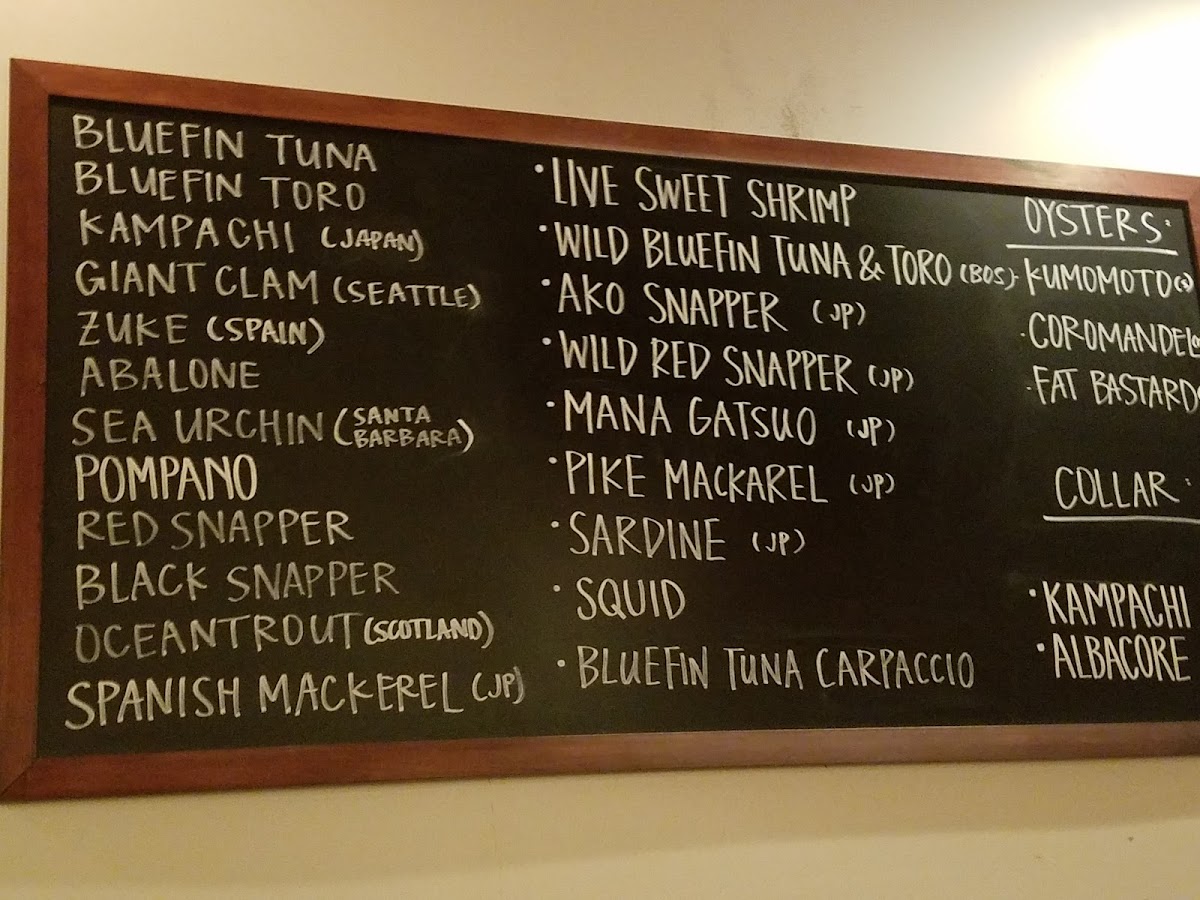 BLUEFIN TUNA
BLUEFIN TORO
KAMPACHI (JAPAN)
GIANT CLAM (SEATTLE)
ZUKE (SPAIN)
ABALONE
SEA URCHIN (SANTA BARBARA)
POMPANO
RED SNAPPER
BLACK SNAPPER
OCEANTROUT (SCOTLAND)
SPANISH MACKEREL (JP)
• LIVE SWEET SHRIMP
• WILD BLUEFIN TUNA & TORO (BOS)
• AKO SNAPPER (JP)
• WILD RED SNAPPER (JP)
• MANA GATSUO (JP)
• PIKE MACKAREL (JP)
• SARDINE (JP)
• SQUID
• BLUEFIN TUNA CARPACCIO
OYSTERS:
- KUMOMOTO
- COROMANDEL
- FAT BASTARD
COLLAR:
• KAMPACHI
• ALBACORE